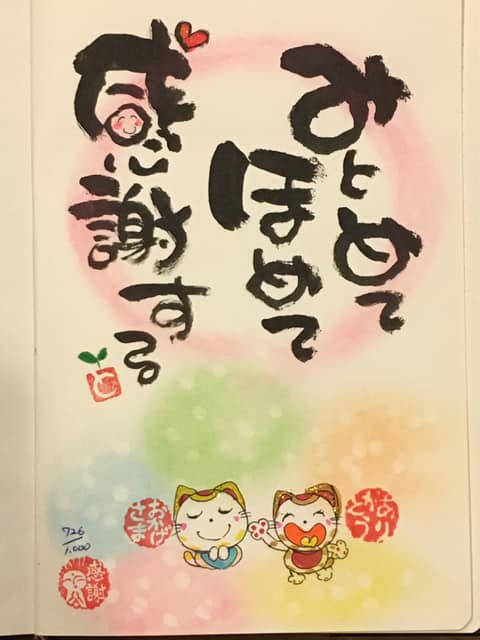 みとめて
ほめて
感謝する
ありがとう
おかげさま
726/1,000
感謝